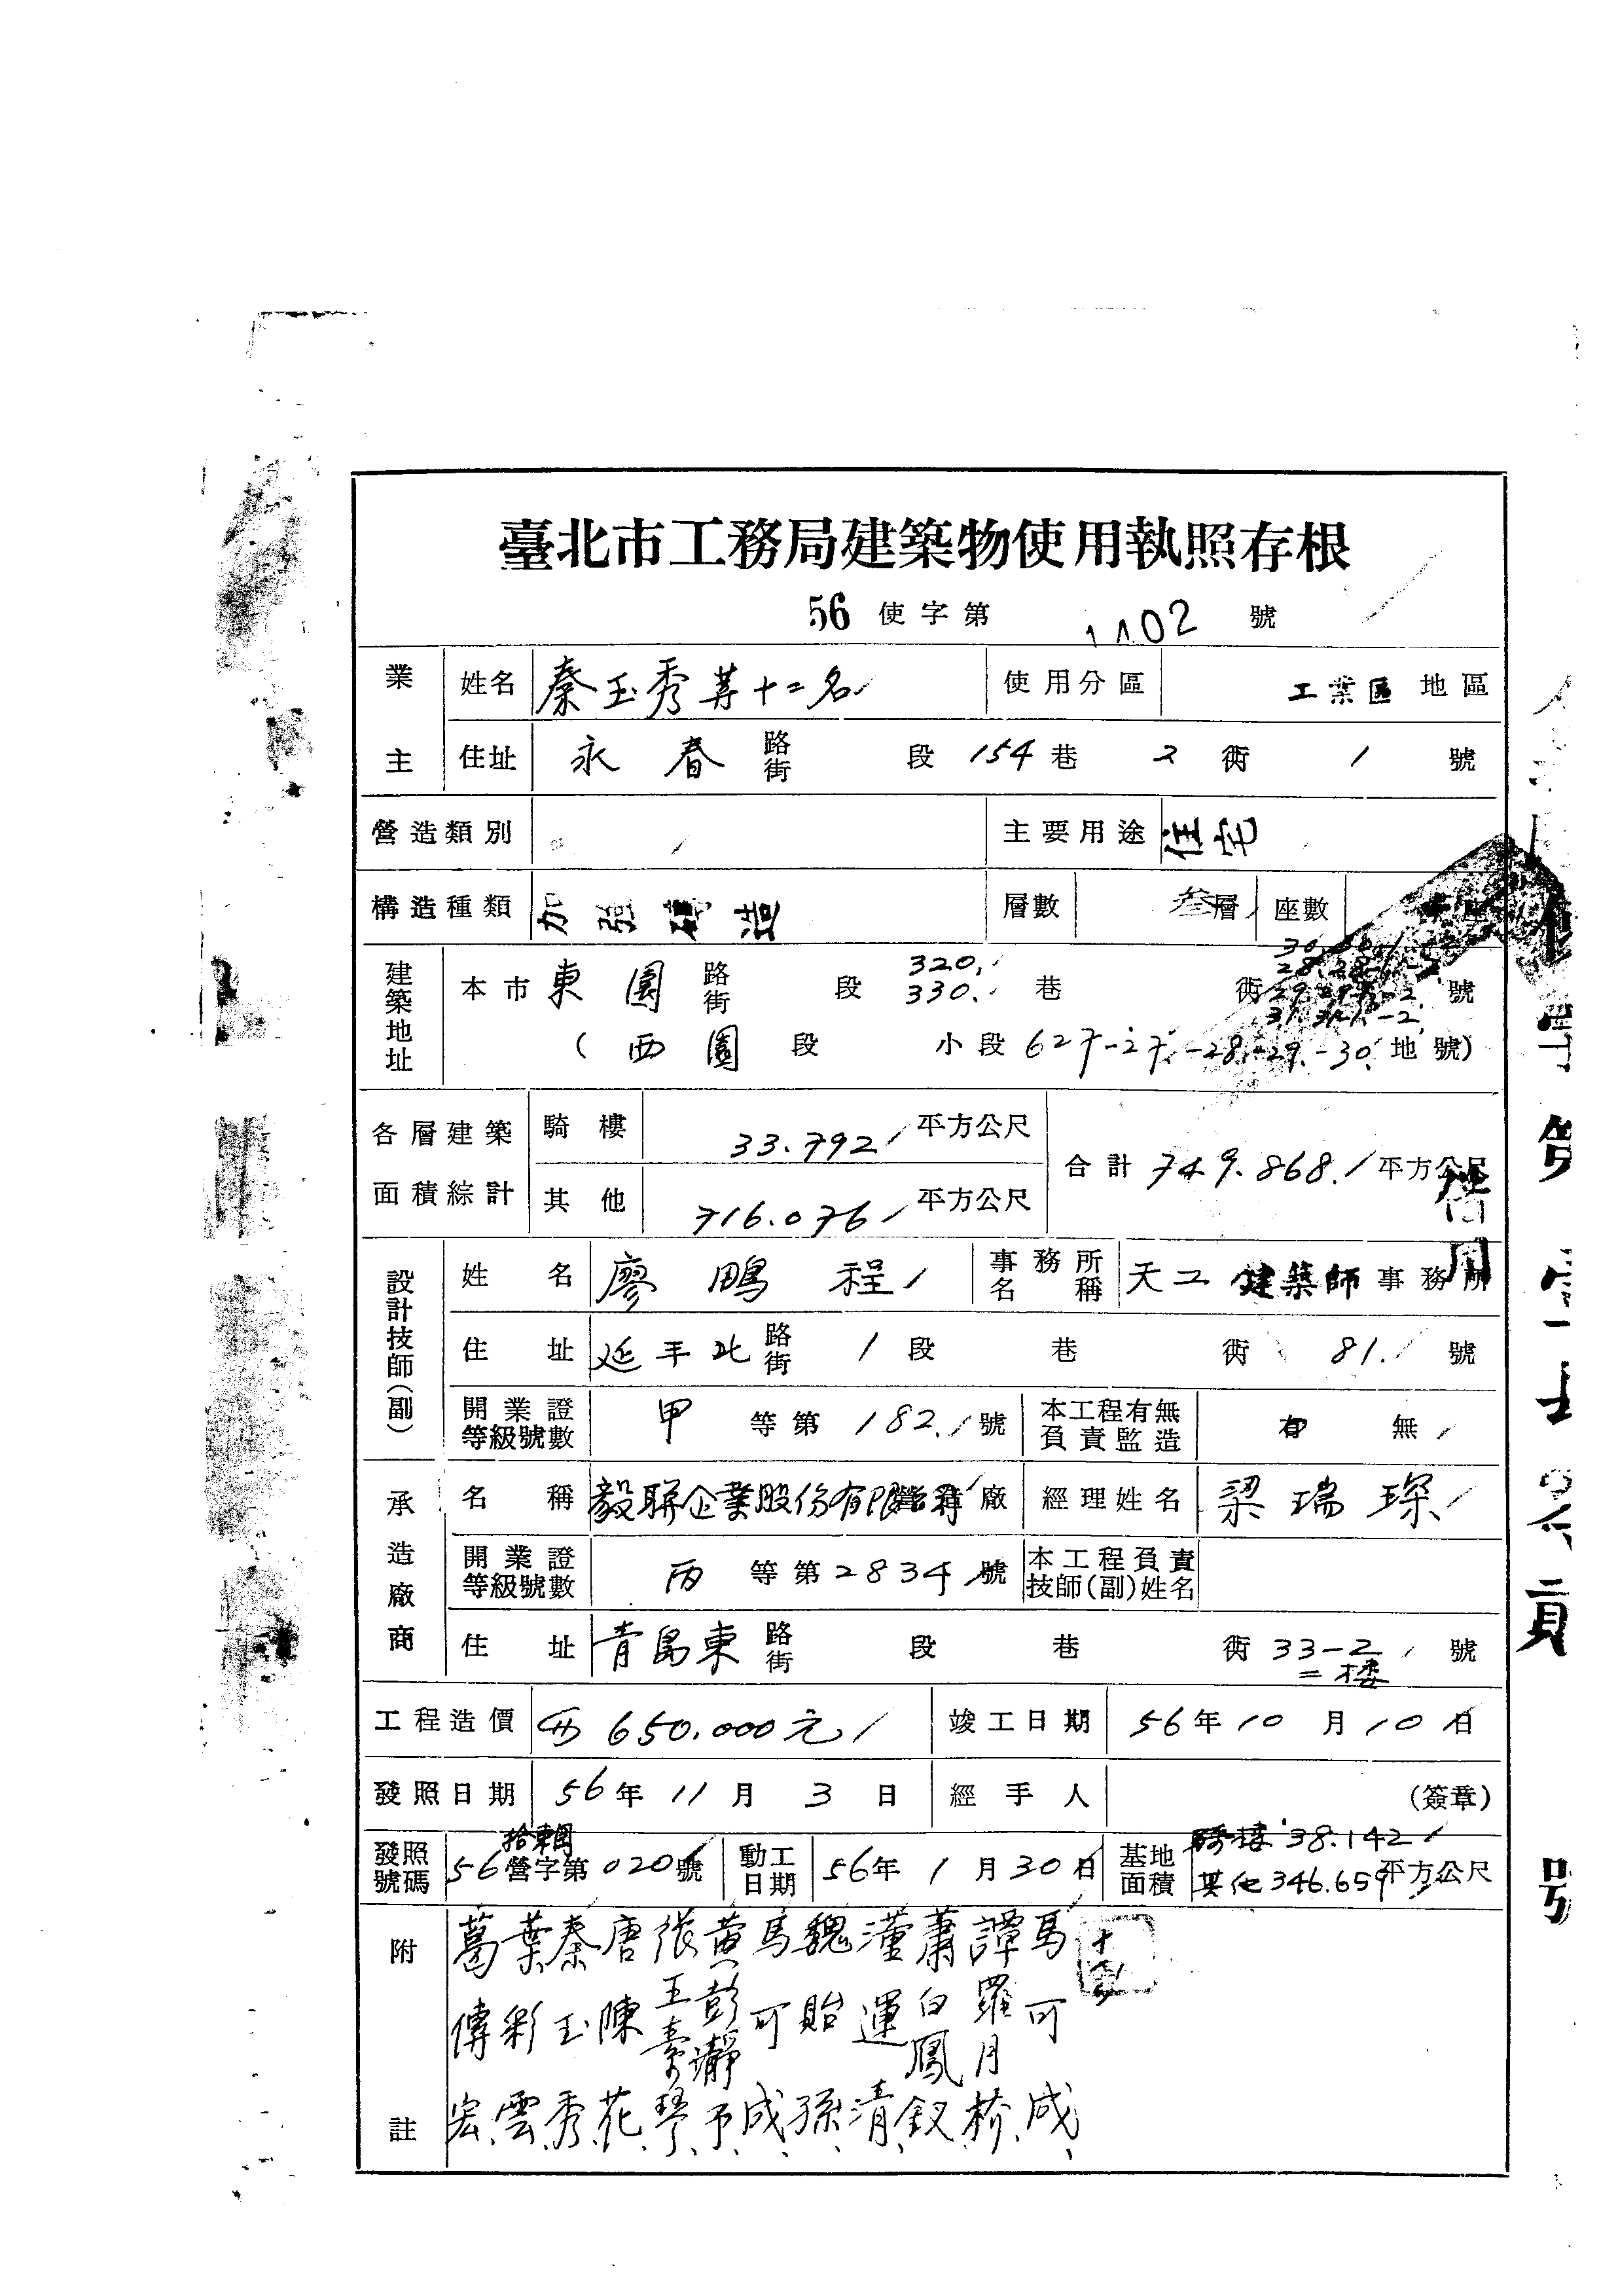 臺北市工務局建築物使用執照存根
56 使字第 1102 號
業主 姓名 秦玉秀等十二名 使用分區 工業區 地區
住址 永春 路街 段 154 巷 2 衖 1 號
營造類別 主要用途 住宅
構造種類 加強磚造 層數 叁層 座數
建築地址 本市 東園 路街 段 320. 330. 巷 衖 號
(西園 段 小段 627-27.-28.-29.-30. 地號)
各層建築面積綜計 騎樓 33.792 平方公尺 合計 749.868. 平方公尺
其他 716.076 平方公尺
設計技師(副) 姓名 廖鵬程 事務所名稱 天工建築師事務所
住址 延平北 路街 1 段 巷 衖 81. 號
開業證等級號數 甲 等第 182. 號 本工程有無負責監造 有 無
承造廠商 名稱 毅聯企業股份有限 廠 經理姓名 梁瑞琛
開業證等級號數 丙 等第 2834 號 本工程負責技師(副)姓名
住址 青島東 路街 段 巷 衖 33-2 二樓 號
工程造價 650.000元 竣工日期 56年10月10日
發照日期 56年11月3日 經手人 (簽章)
發照號碼 56 營字第 0206 號 動工日期 56年1月30日 基地面積 騎樓 38.142 其他 346.659 平方公尺
附註 葛傳宏、葉彩雲、秦玉秀、唐陳花、張王素琴、黃彭瀞予、馬可成、魏貽孫、運清、蕭白鳳釵、譚羅月桥、馬可成、
使用